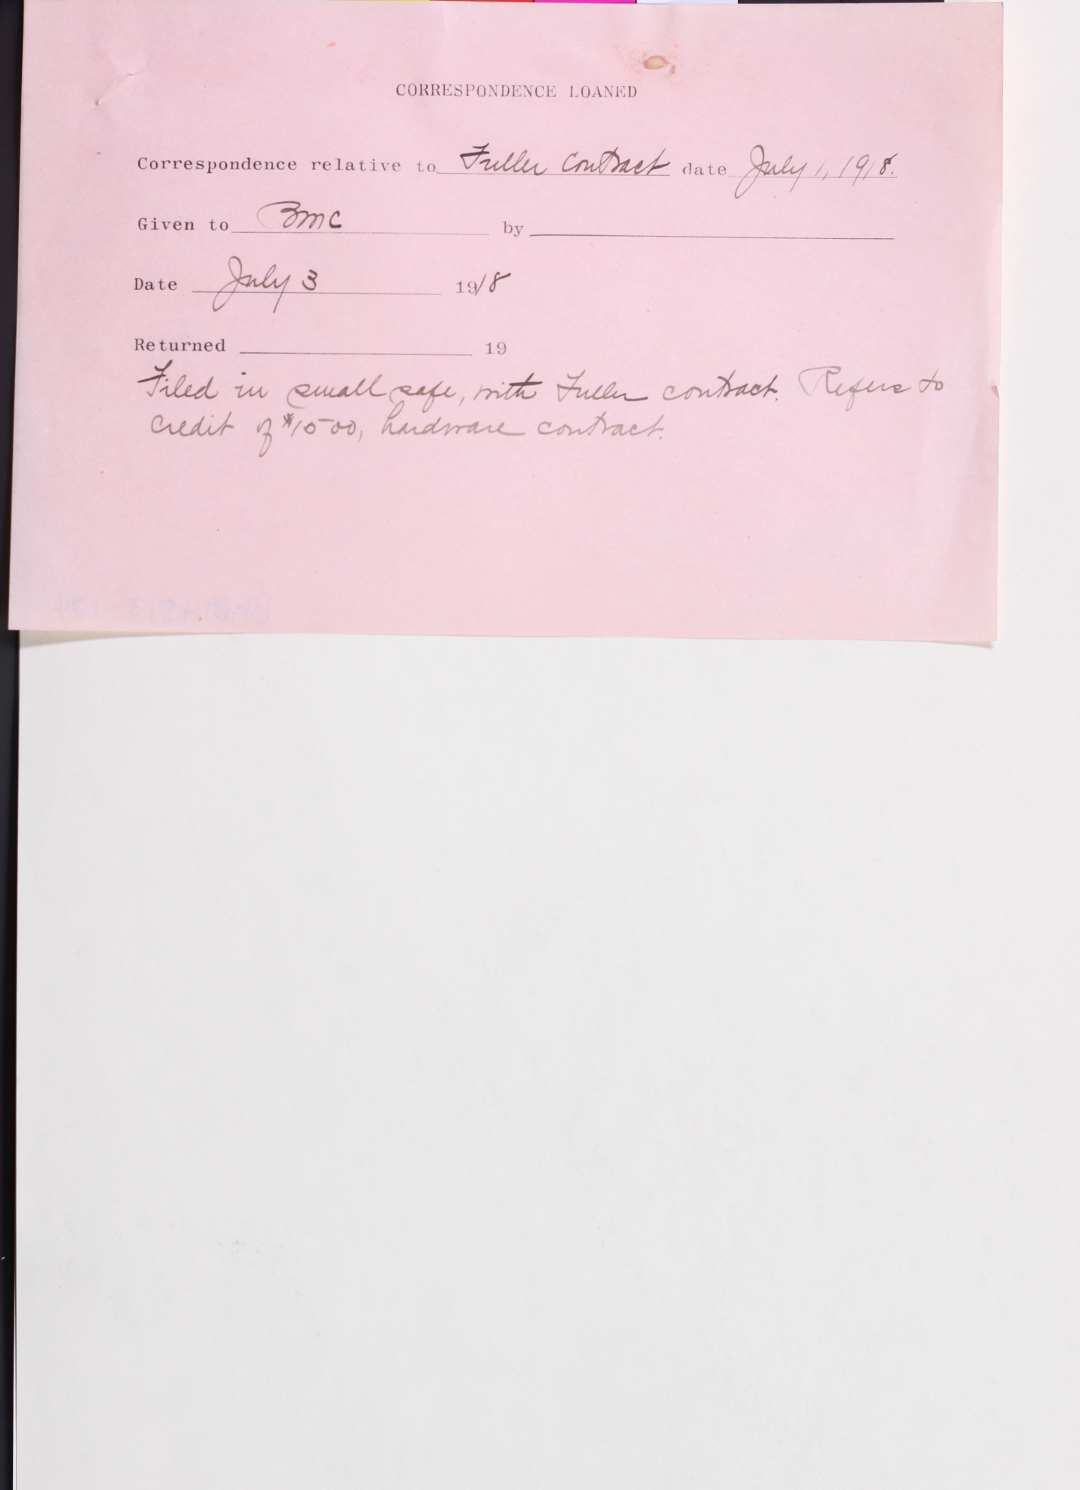 CORRESPONDENCE LOANED
Correspondence relative to Fuller Contract date July 1, 1918.
Given to BMC by
Date July 3 1918
Returned 19
Filed in small safe, with Fuller contract. Refers to
credit of $1500, hardware contract.